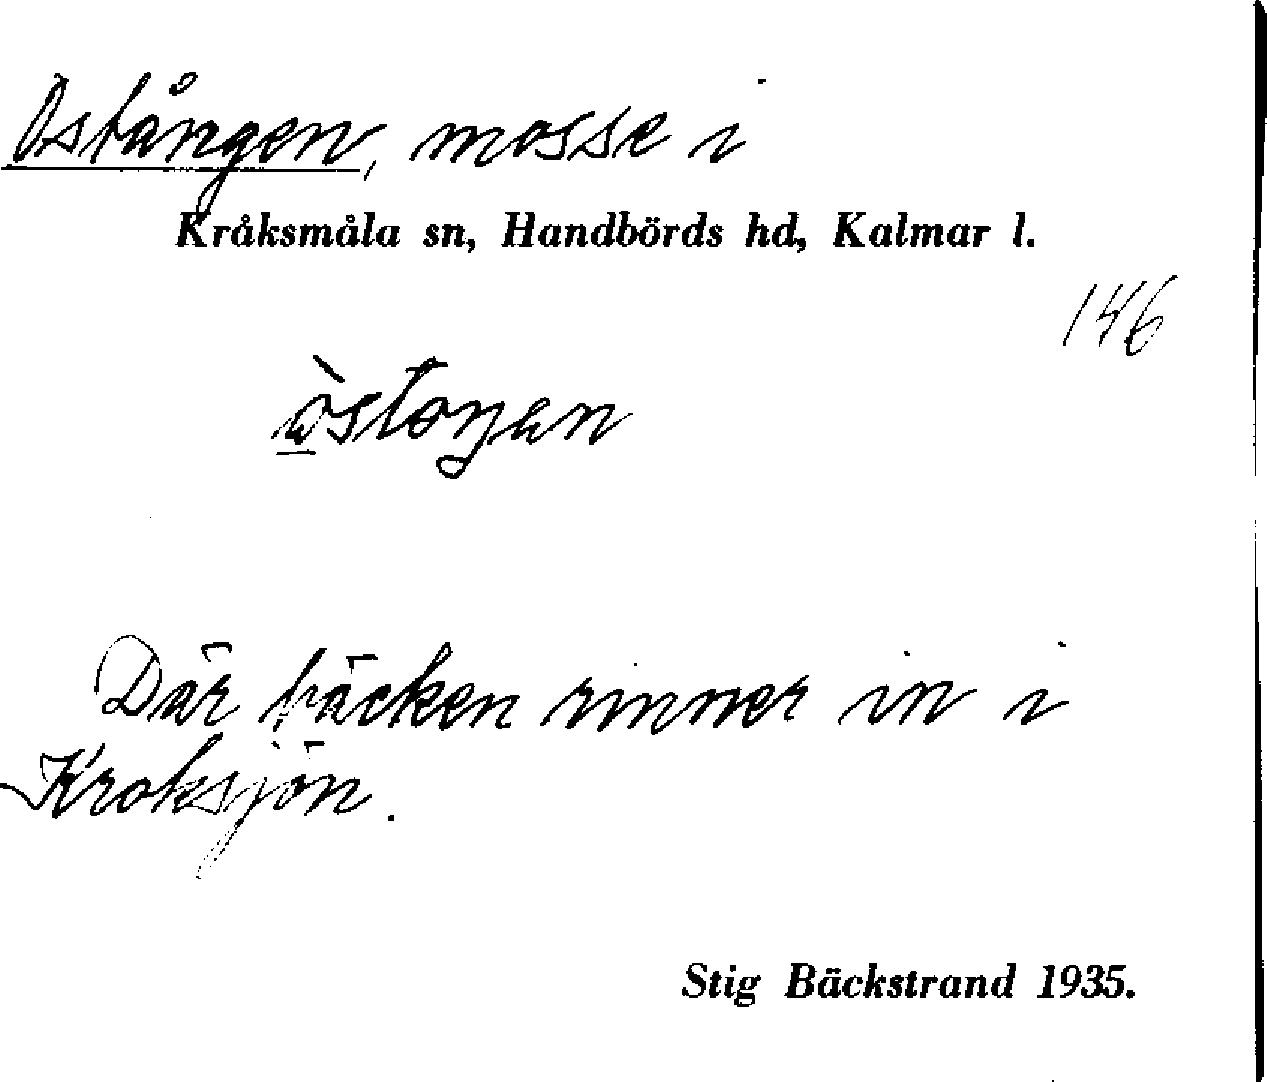 Ostången, mosse i
Kråksmåla sn, Handbörds hd, Kalmar l.
146
Där bäcken rinner in i
Kroksjön.
Stig Bäckstrand 1935.